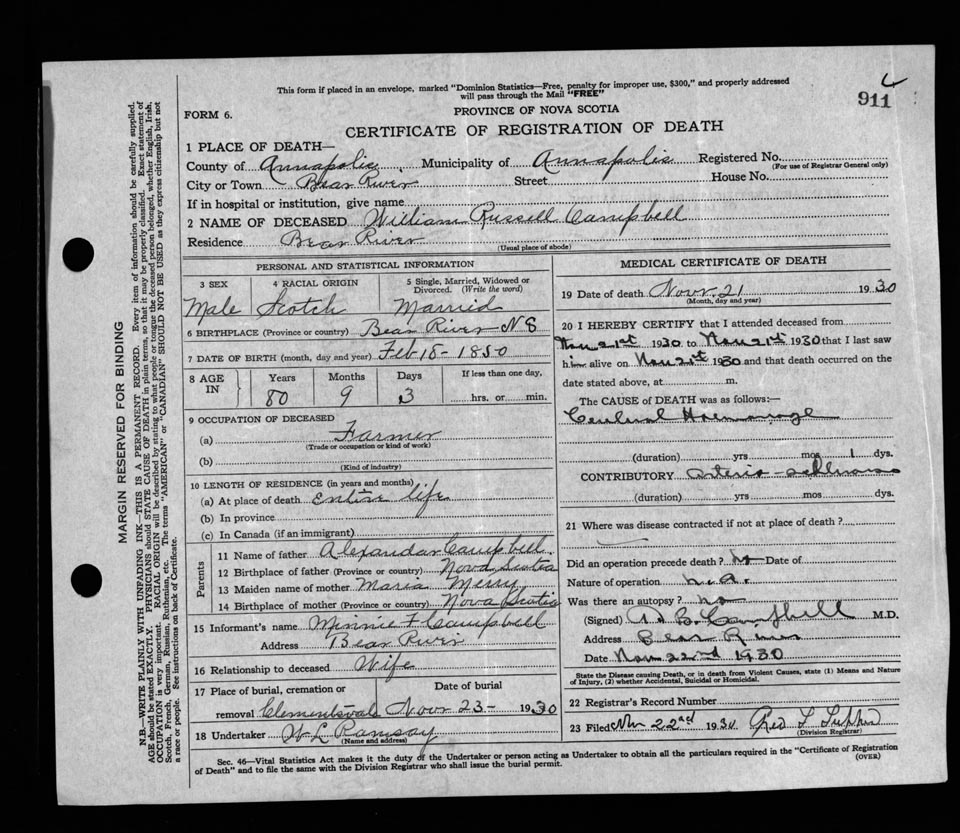 This form if placed in an envelope, marked "Dominion Statistics—Free, penalty for improper use, $300," and properly addressed
will pass through the Mail "FREE"
911
FORM 6.
PROVINCE OF NOVA SCOTIA
CERTIFICATE OF REGISTRATION OF DEATH
1 PLACE OF DEATH—
County of Annapolis Municipality of Annapolis Registered No.
(For use of Registrar General only)
City or Town Bear River Street House No.
If in hospital or institution, give name
2 NAME OF DECEASED William Russell Campbell
Residence Bear River
(Usual place of abode)
PERSONAL AND STATISTICAL INFORMATION
3 SEX 4 RACIAL ORIGIN 5 Single, Married, Widowed or Divorced. (Write the word)
Male Scotch Married
6 BIRTHPLACE (Province or country) Bear River N S
7 DATE OF BIRTH (month, day and year) Feb 18 - 1850
8 AGE IN Years Months Days If less than one day,
80 9 3 hrs. or min.
9 OCCUPATION OF DECEASED
(a) Farmer
(Trade or occupation or kind of work)
(b)
(Kind of industry)
10 LENGTH OF RESIDENCE (in years and months)
(a) At place of death entire life
(b) In province
(c) In Canada (if an immigrant)
Parents
11 Name of father Alexandar Campbell
12 Birthplace of father (Province or country) Nova Scotia
13 Maiden name of mother Maria Merry
14 Birthplace of mother (Province or country) Nova Scotia
15 Informant's name Minnie F Campbell
Address Bear River
16 Relationship to deceased Wife
17 Place of burial, cremation or Date of burial
removal Clementsvale Novr 23 - 1930
18 Undertaker W L Ramsay
(Name and address)
MEDICAL CERTIFICATE OF DEATH
19 Date of death Novr. 21 1930
(Month, day and year)
20 I HEREBY CERTIFY that I attended deceased from
Nov 21st 1930 to Nov 21st 1930 that I last saw
him alive on Nov 21st 1930 and that death occurred on the
date stated above, at m.
The CAUSE OF DEATH was as follows:—
Cerebral Haemorrage
(duration) yrs mos 1 dys.
CONTRIBUTORY arterio-sclerosis
(duration) yrs mos dys.
21 Where was disease contracted if not at place of death?
Did an operation precede death? no Date of
Nature of operation n.a.
Was there an autopsy? no
(Signed) Campbell M.D.
Address Bear River
Date Nov 22nd 1930
State the Disease causing Death, or in death from Violent Causes, state (1) Means and Nature
of Injury, (2) whether Accidental, Suicidal or Homicidal.
22 Registrar's Record Number
23 Filed Nov 22nd 1930
(Division Registrar)
Sec. 46—Vital Statistics Act makes it the duty of the Undertaker or person acting as Undertaker to obtain all the particulars required in the "Certificate of Registration
of Death" and to file the same with the Division Registrar who shall issue the burial permit.
(OVER)
MARGIN RESERVED FOR BINDING
N.B.—WRITE PLAINLY WITH UNFADING INK—THIS IS A PERMANENT RECORD. Every item of information should be carefully supplied.
AGE should be stated EXACTLY. PHYSICIANS should STATE CAUSE OF DEATH in plain terms, so that it may be properly classified. Exact statement of
OCCUPATION is very important. RACIAL ORIGIN will be described by stating to what people or tongue the deceased person belonged, whether English, Irish,
Scotch, French, German, Russian, Ruthenian, etc. The terms "AMERICAN" or "CANADIAN" SHOULD NOT BE USED as they express citizenship but not
a race or people. See instructions on back of Certificate.